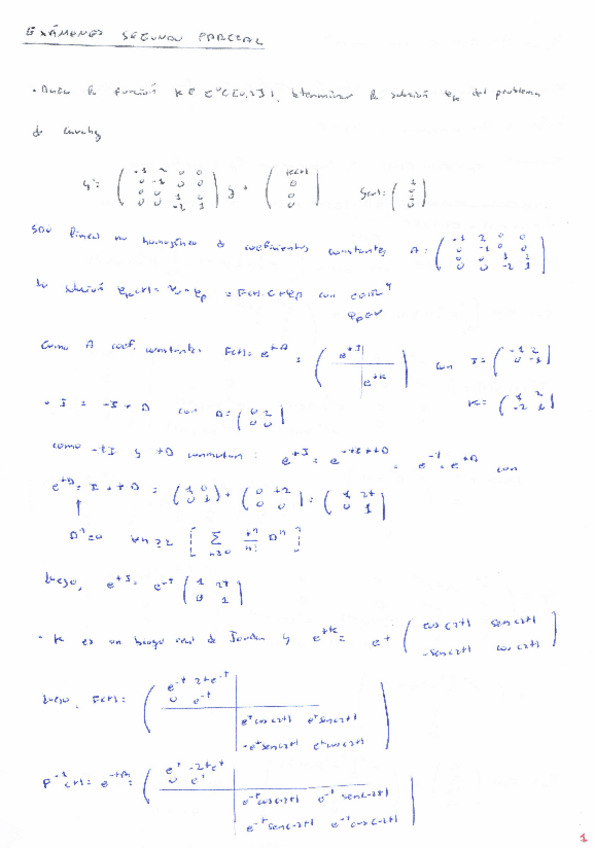 EXÁMENES SEGUNDO PARCIAL
· Dada la función k ∈ C([0,1]), determinar la solución φk del problema
de Cauchy
y' = ( -1 2 0 0 / 0 -1 0 0 / 0 0 1 2 / 0 0 -2 1 ) y + ( k(t) / 0 / 0 / 0 ) y(0) = ( 1 / 0 / 1 / 0 )
SDO lineal no homogéneo de coeficientes constantes A = ( -1 2 0 0 / 0 -1 0 0 / 0 0 1 2 / 0 0 -2 1 )
La solución con
Como A coef. constantes F(t) = e^{tA} = ( e^{tJ} | / | e^{tK} ) con J = ( -1 2 / 0 -1 )
K = ( 1 2 / -2 1 )
· J = -I + D con D = ( 0 2 / 0 0 )
como -tI y tD conmutan: e^{tJ} = e^{-tI+tD} = e^{-t} · e^{tD} con
e^{tD} = I + tD = ( 1 0 / 0 1 ) + ( 0 t2 / 0 0 ) = ( 1 2t / 0 1 )
↑
D^n = 0 ∀n ≥ 2 [ Σ_{n≥0} t^n/n! D^n ]
Luego, e^{tJ} = e^{-t} ( 1 2t / 0 1 )
- K es un bloque real de Jordan y e^{tK} = e^t ( cos(2t) sen(2t) / -sen(2t) cos(2t) )
Luego, F(t) = ( e^{-t} 2te^{-t} / 0 e^{-t} | / | e^t cos(2t) e^t sen(2t) / -e^t sen(2t) e^t cos(2t) )
F^{-1}(t) = e^{-tA} = ( e^t -2te^t / 0 e^t | / | e^{-t} cos(-2t) e^{-t} sen(-2t) / e^{-t} sen(-2t) e^{-t} cos(-2t) )
1